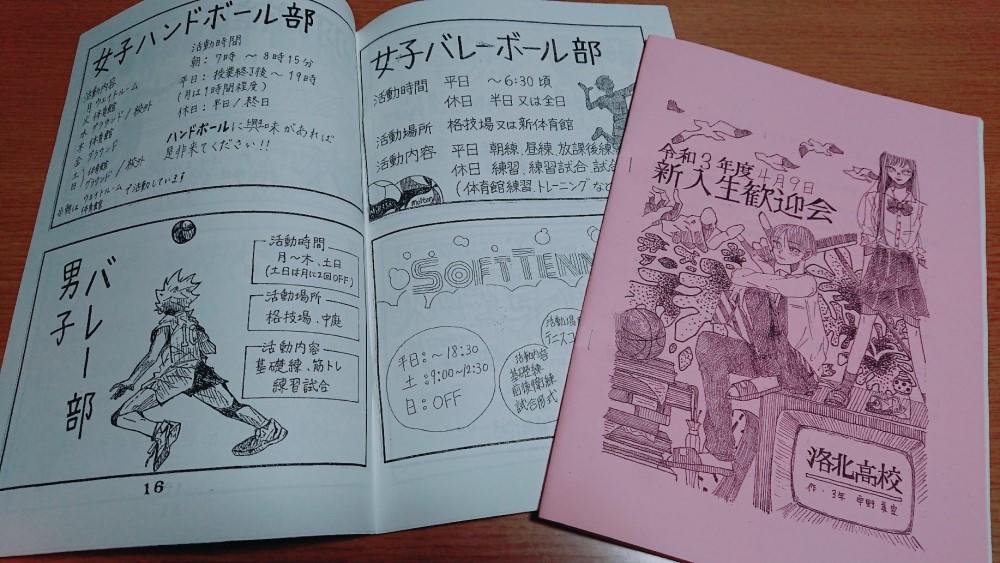 女子ハンドボール部
活動時間
朝：7時 ～ 8時15分
平日：授業終了後～19時
(月は1時間程度)
休日：半日/終日
活動内容
月 ウェイトルーム
火 体育館
水 グラウンド/校外
木 体育館
金 グラウンド
土 体育館
日 グラウンド/校外
ウェイトルーム
体育館
で活動しています
ハンドボールに興味があれば
是非来てください!!
女子バレーボール部
活動時間 平日 ～6:30頃
休日 半日又は全日
活動場所 格技場又は新体育館
活動内容 平日 朝練、昼練、放課後練
休日 練習、練習試合、試合
(体育館練習、トレーニングなど
molten
男子
バレー部
活動時間
月～木、土日
(土日は月に2回OFF)
活動場所
格技場、中庭
活動内容
基礎練、筋トレ
練習試合
16
SOFT TENN
平日：～18:30
土：9:00～12:30
日：OFF
活動場所
テニスコ
活動内容
基礎練
前後衛練
試合形式
令和3年度 4月9日
新入生歓迎会
洛北高校
作・3年